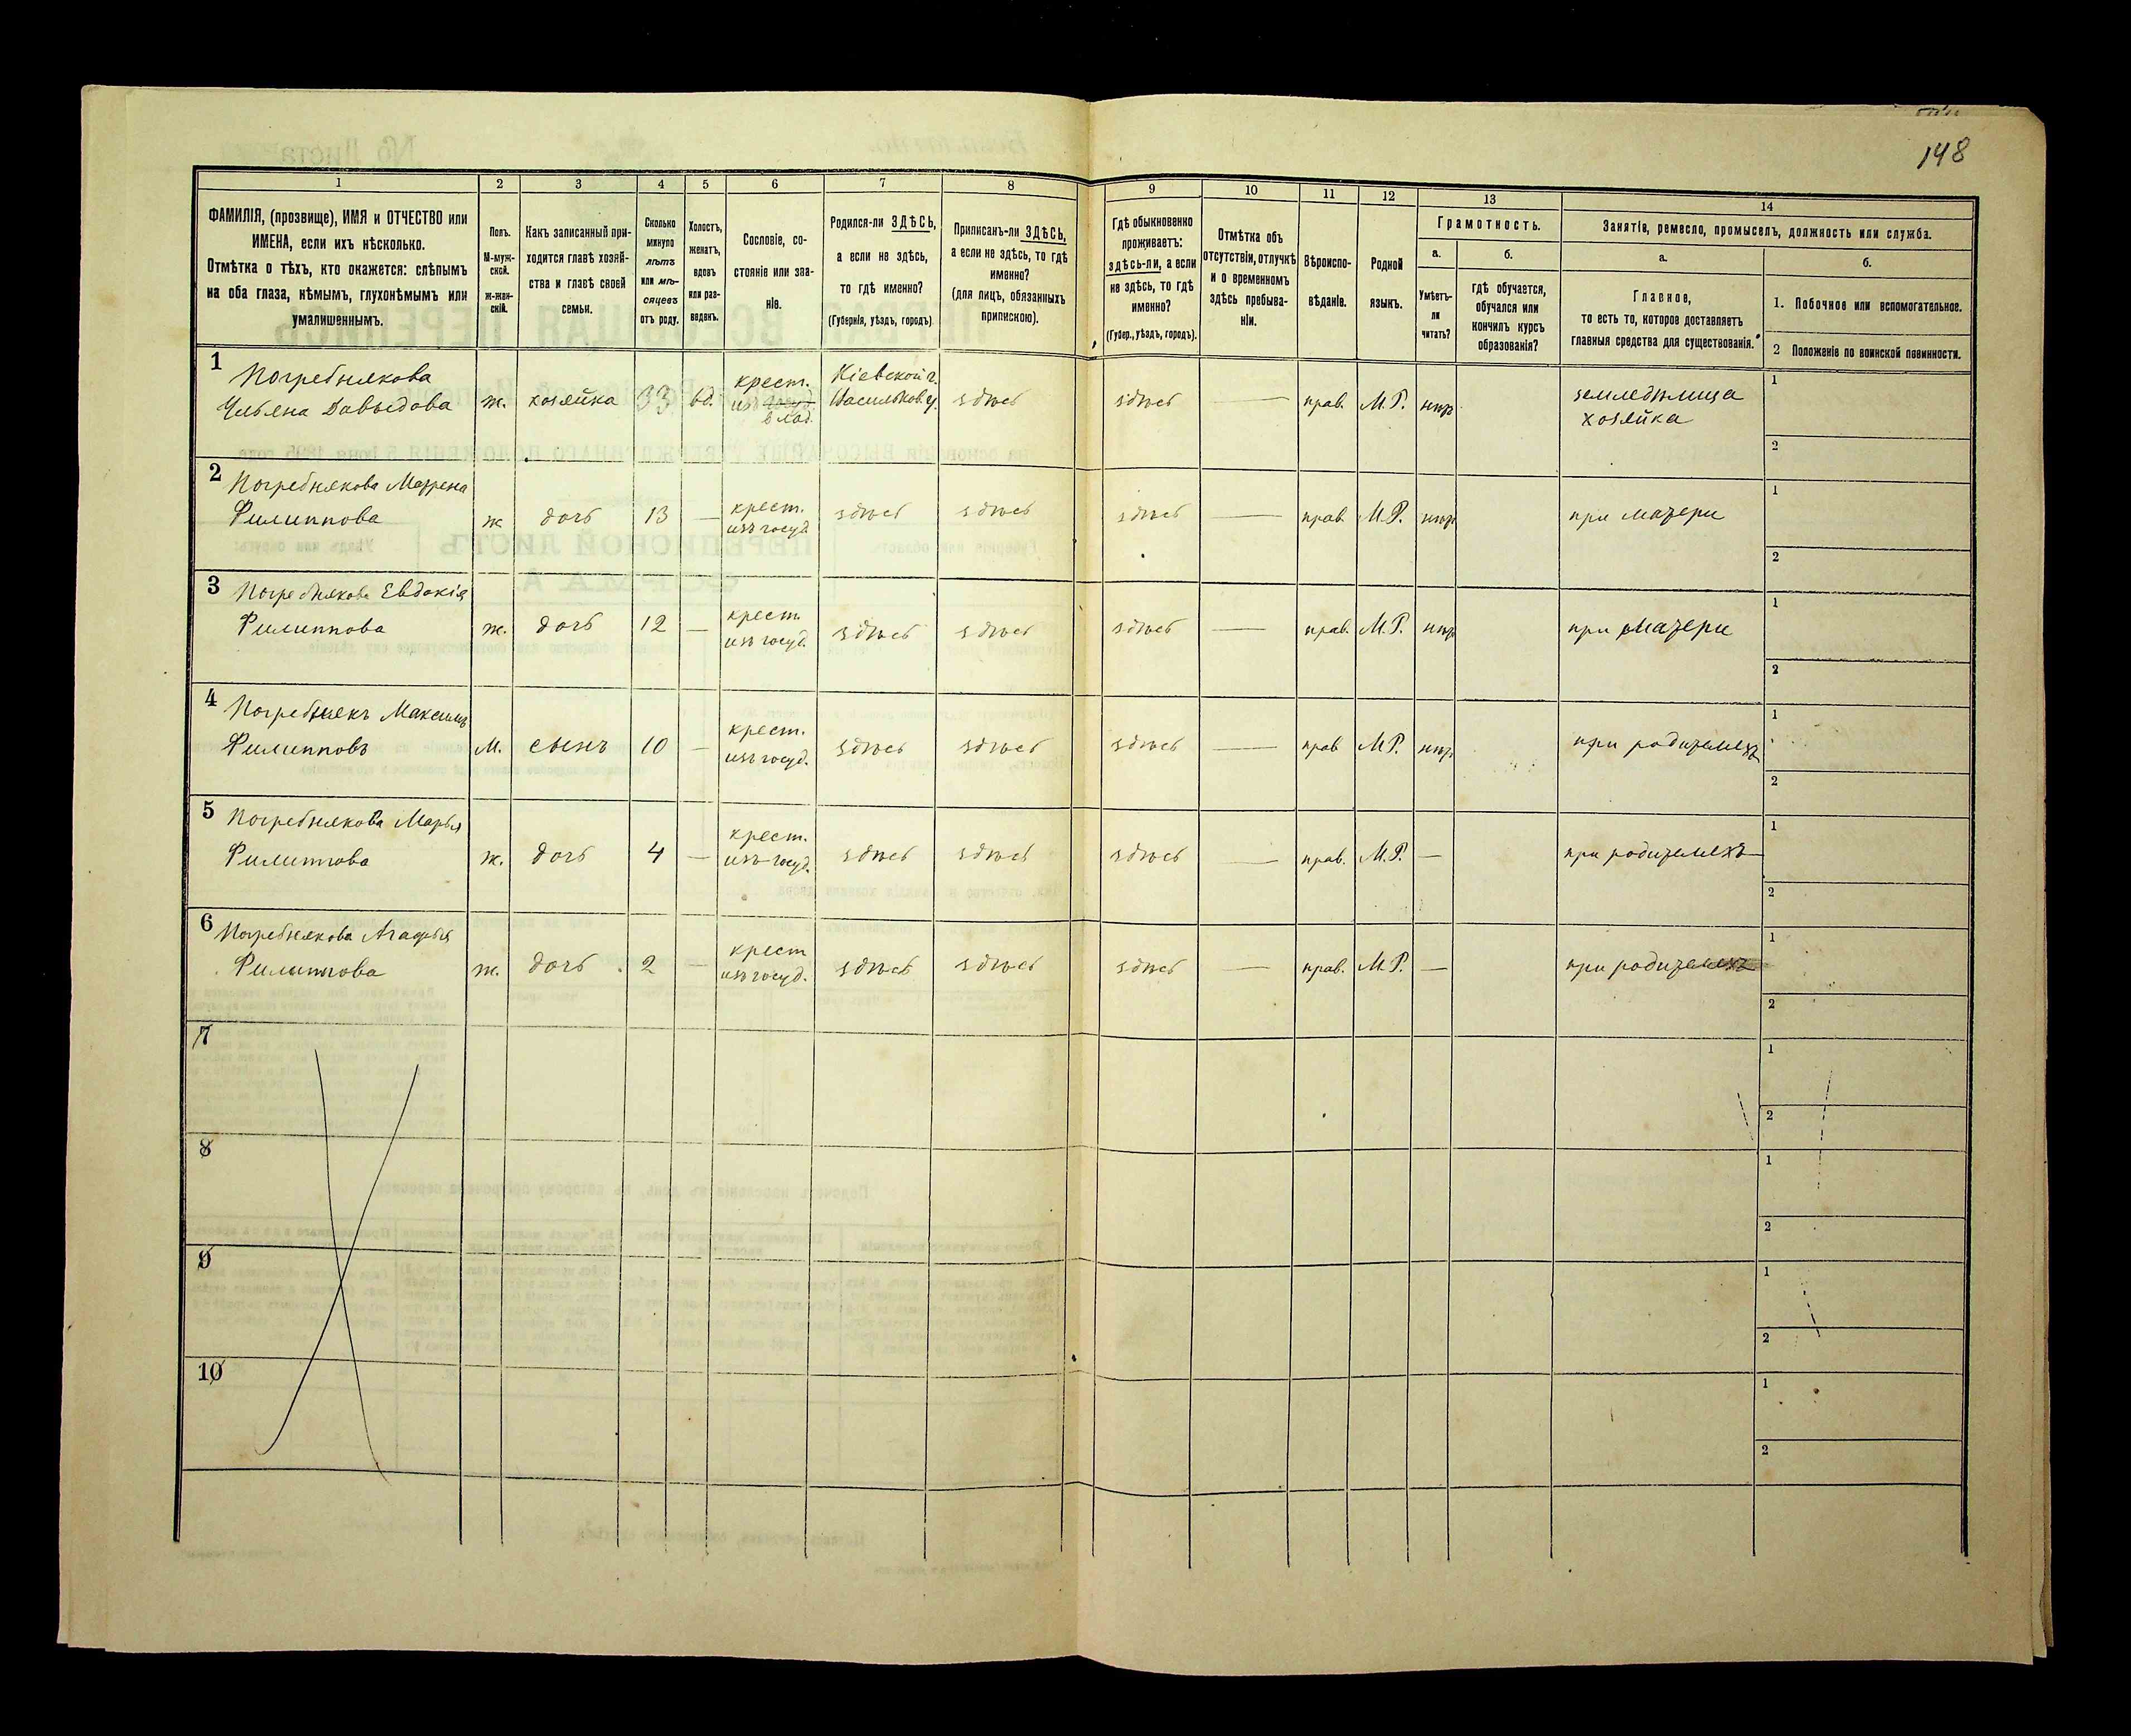 148
1
2
3
4
5
6
7
8
9
10
11
12
13
14
ФАМИЛІЯ, (прозвище), ИМЯ и ОТЧЕСТВО или
ИМЕНА, если ихъ нѣсколько.
Отмѣтка о тѣхъ, кто окажется: слѣпымъ
на оба глаза, нѣмымъ, глухонѣмымъ или
умалишеннымъ.
Полъ.
М-муж-
ской.
ж-жен-
скій.
Какъ записанный при-
ходится главѣ хозяй-
ства и главѣ своей
семьи.
Сколько
минуло
лѣтъ
или мѣ-
сяцевъ
отъ роду.
Холостъ,
женатъ,
вдовъ
или раз-
веденъ.
Сословіе, со-
стояніе или зва-
ніе.
Родился-ли ЗДѢСЬ,
а если не здѣсь,
то гдѣ именно?
(Губернія, уѣздъ, городъ)
Приписанъ-ли ЗДѢСЬ,
а если не здѣсь, то гдѣ
именно?
(для лицъ, обязанныхъ
припискою).
Гдѣ обыкновенно
проживаетъ:
здѣсь-ли, а если
не здѣсь, то гдѣ
именно?
(Губер., уѣздъ, городъ).
Отмѣтка объ
отсутствіи, отлучкѣ
и о временномъ
здѣсь пребыва-
ніи.
Вѣроиспо-
вѣданіе.
Родной
языкъ.
Грамотность.
а.
Умѣетъ-
ли
читать?
б.
гдѣ обучается,
обучался или
кончилъ курсъ
образованія?
Занятіе, ремесло, промыселъ, должность или служба.
а.
Главное,
то есть то, которое доставляетъ
главныя средства для существованія.
б.
1. Побочное или вспомогательное.
2 Положеніе по воинской повинности.
1 Погребнякова
Ульяна Давыдова ж. хозяйка 33 вд. крест. изъ госуд. влад. Кіевской г. Васильков. у. здѣсь здѣсь — прав. М.Р. нѣтъ земледѣлица
хозяйка 1
2
2 Погребнякова Матрена
Филиппова ж дочь 13 — крест. изъ госуд. здѣсь здѣсь здѣсь — прав. М.Р. нѣтъ при матери 1
2
3 Погребнякова Евдокія
Филиппова ж. дочь 12 — крест. изъ госуд. здѣсь здѣсь здѣсь — прав. М.Р. нѣтъ при матери 1
2
4 Погребнякъ Максимъ
Филипповъ М. сынъ 10 — крест. изъ госуд. здѣсь здѣсь здѣсь — прав М.Р. нѣтъ при родителяхъ 1
2
5 Погребнякова Марья
Филиппова ж. дочь 4 — крест. изъ госуд. здѣсь здѣсь здѣсь — прав. М.Р. — при родителяхъ 1
2
6 Погребнякова Агафья
Филиппова ж. дочь 2 — крест изъ госуд. здѣсь здѣсь здѣсь — прав. М.Р. — при родителяхъ 1
2
7 1
2
8 1
2
9 1
2
10 1
2